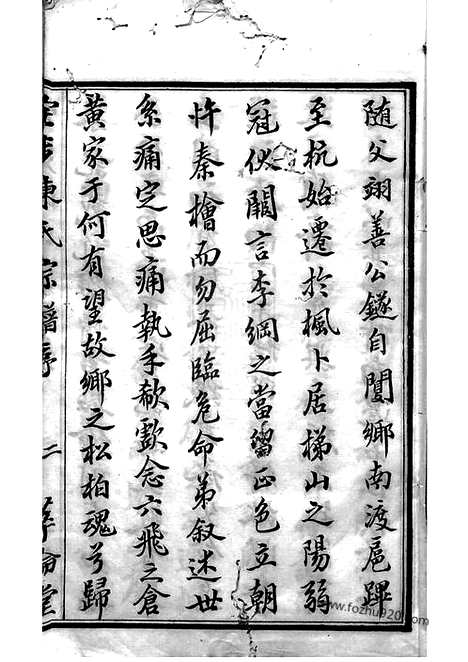 随父翊善公鐩自閺鄉南渡扈蹕
至杭始遷於楓卜居梯山之陽弱
冠伏闕言李綱之當留正色立朝
忤秦檜而勿屈臨危命弟叙述世
系痛定思痛執手欷歔念六飛之倉
黄家于何有望故鄉之松柏魂兮歸
陳氏宗譜序 二
www.fozhu920.com